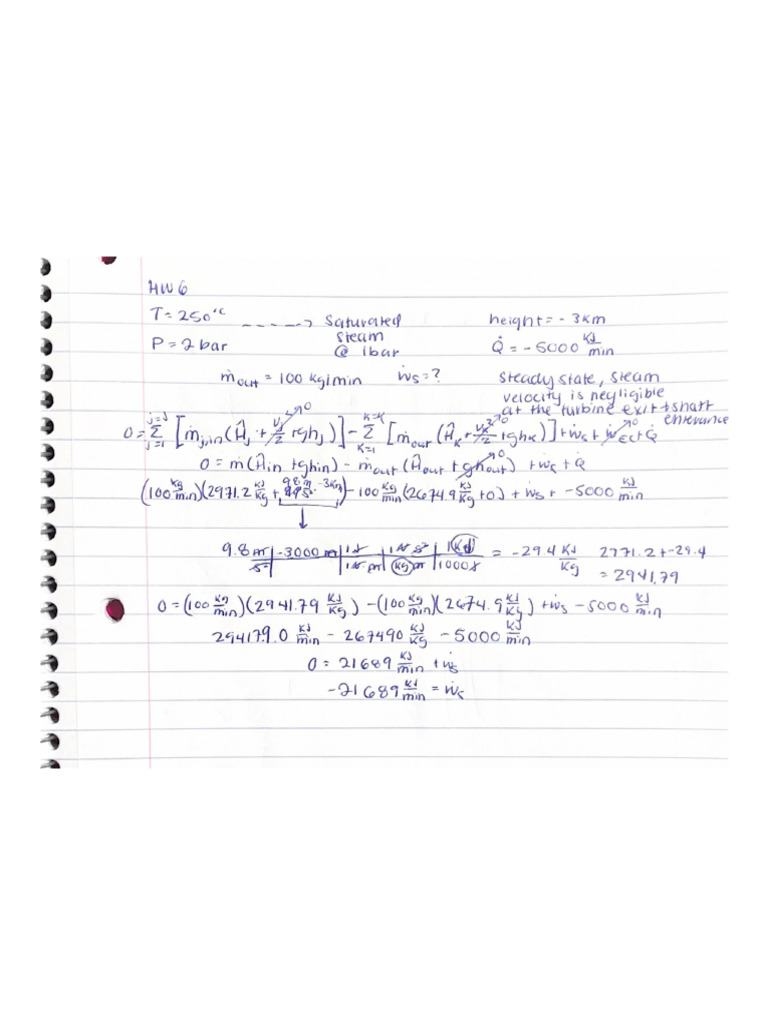 HW 6
T = 250°C -----> Saturated height = - 3km
P = 2 bar steam @ 1bar Q̇ = - 5000 kJ/min
ṁout = 100 kg/min ẇs = ? steady state, steam
velocity is negligible
at the turbine exit + entrance
0 = Σ(j=1 to j=J) [ṁj,in (Ĥj + vj²/2 + ghj)] - Σ(K=1 to K=K) [ṁout (ĤK + vK²/2 + ghK)] + ẇs + ẇEC + Q̇
0 = ṁ(Ĥin + ghin) - ṁout (Ĥout + ghout) + ẇs + Q̇
(100 kg/min)(2971.2 kJ/kg + 9.8 m/s² · -3km) - 100 kg/min (2674.9 kJ/kg + 0) + ẇs + -5000 kJ/min
9.8 m/s² | -3000 m | 1 J / 1 N m | 1 N s² / kg m | 1 kJ / 1000 J = -29.4 kJ/kg 2771.2 + -29.4
= 2941.79
0 = (100 kg/min)(2941.79 kJ/kg) - (100 kg/min)(2674.9 kJ/kg) + ẇs - 5000 kJ/min
294179.0 kJ/min - 267490 kJ/kg - 5000 kJ/min
0 = 21689 kJ/min + ẇs
-21689 kJ/min = ẇs